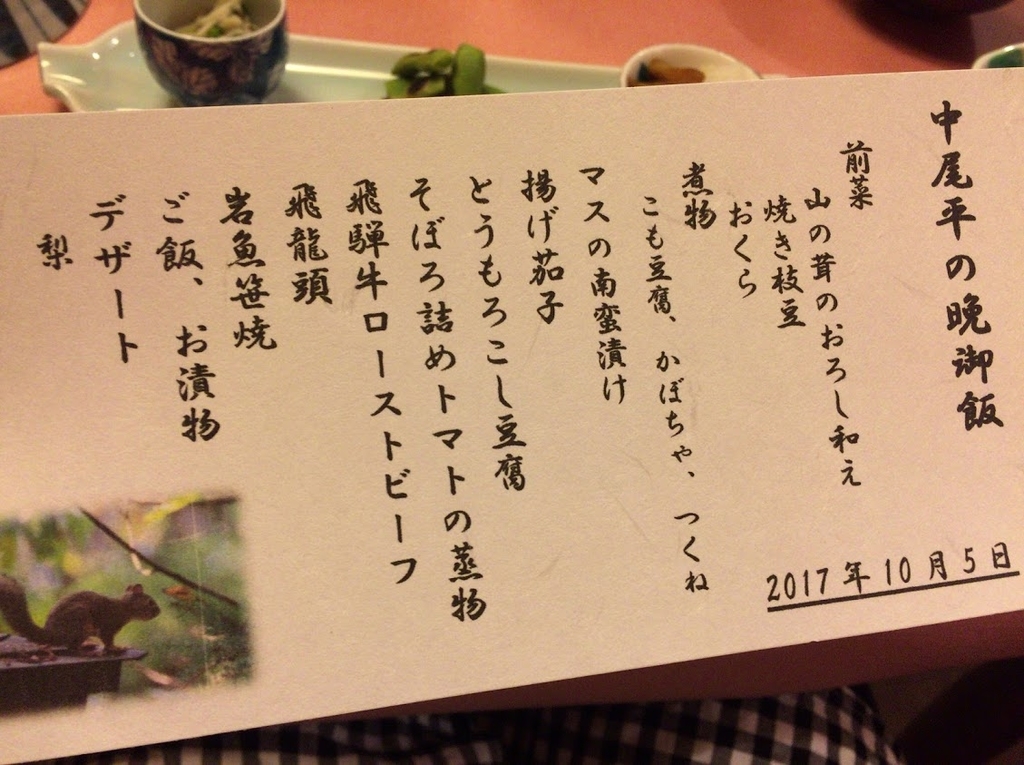 中尾平の晩御飯
2017年10月5日
前菜
山の茸のおろし和え
焼き枝豆
おくら
煮物
こも豆腐、かぼちゃ、つくね
マスの南蛮漬け
揚げ茄子
とうもろこし豆腐
そぼろ詰めトマトの蒸物
飛騨牛ローストビーフ
飛龍頭
岩魚笹焼
ご飯、お漬物
デザート
梨